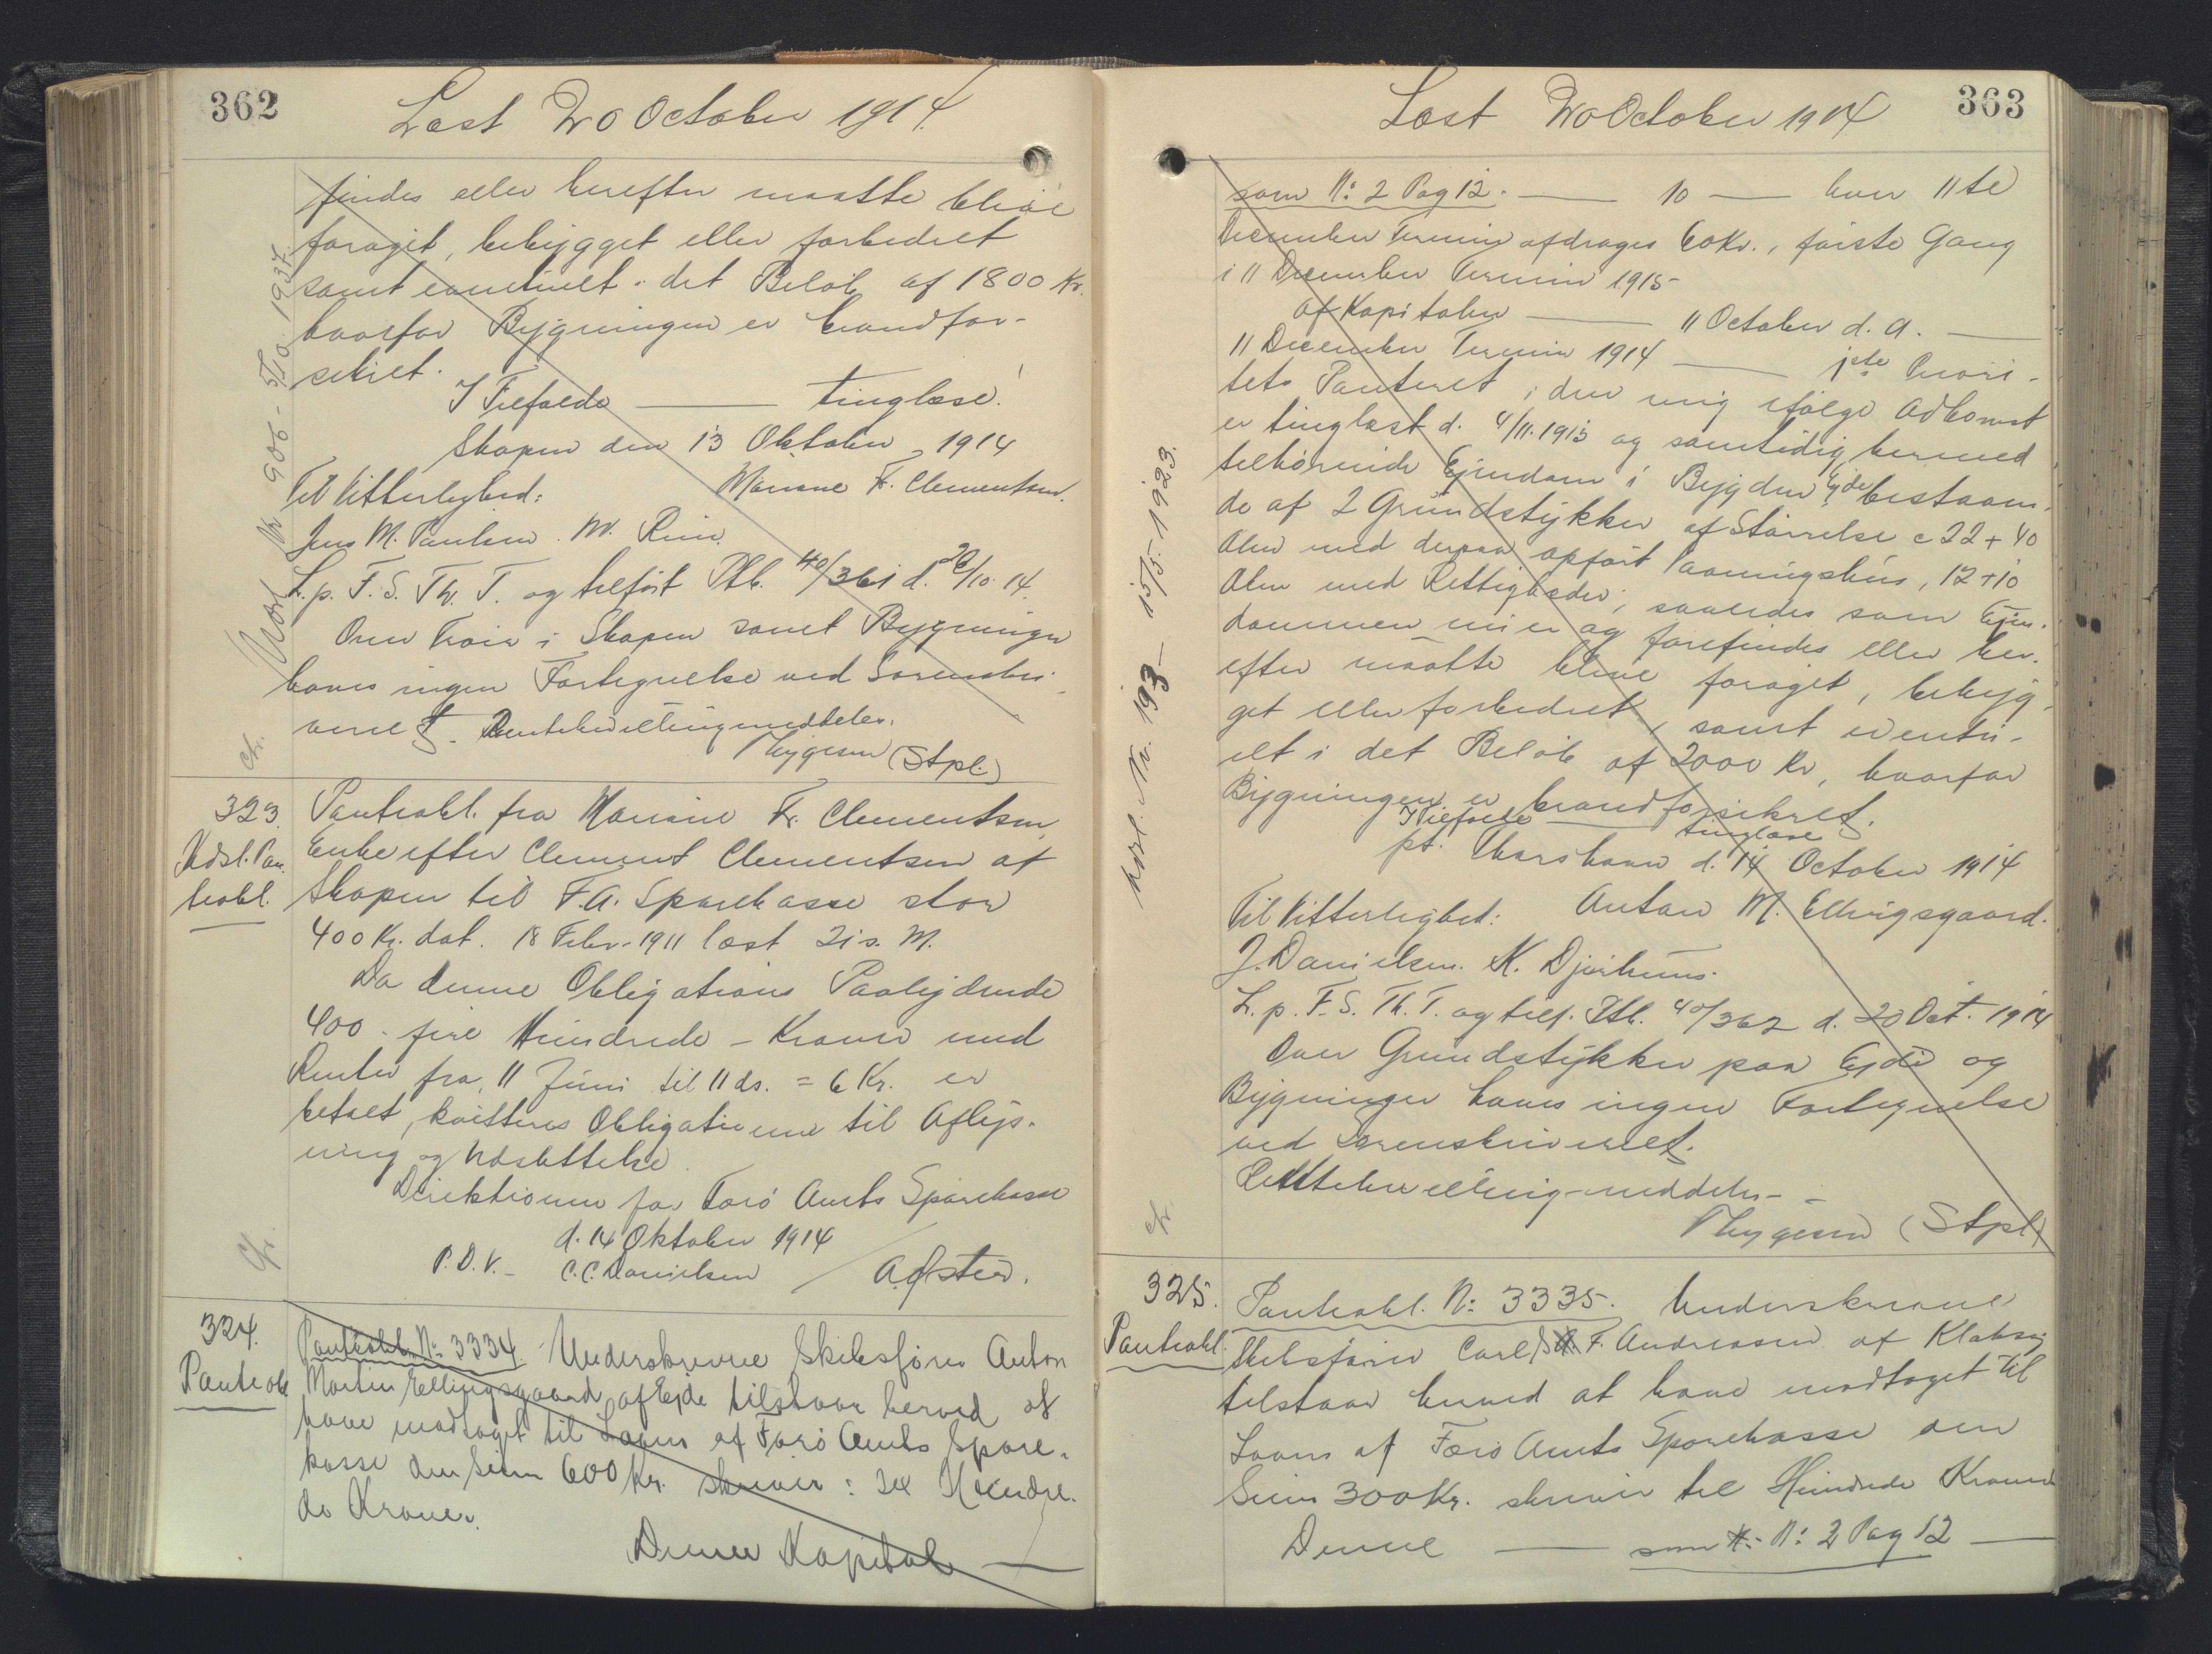 362
Læst 20 October 1914.
findes eller herefter maatte blive
forøget, bebygget eller forbedret
samt eventuelt i det Beløb af 1800 Kr.
hvorfor Bygningen er brandfor-
sikret.
I Tilfælde — tinglæse!
Skopen den 13 Oktober 1914
Til Vitterlighed: Mariane Fr. Clementsen.
Jens M. Paulsen. M.
L. p. F. S. Th. T. og tilført Ptb. 40/361 d. 20/10 14.
Over i Skopen samt Bygninger
haves ingen Fortegnelse ved Sorenskri-
veriet. meddeles.
Thygesen (Stpl.)
Nr 906 - 5/10 1937.
cfr.
323.
Udsl. Pan-
teobl.
Panteobl. fra Mariane Fr. Clementsen
Enke efter Clement Clementsen af
Skopen til F. A. Sparekasse stor
400 Kr. dat. 18 Febr. 1911 læst 21 s. M.
Da denne Obligations Paalydende
400 - fire Hundrede - Kroner med
Renter fra 11 Juni til 11 ds. = 6 Kr. er
betalt, kvitteres Obligationen til Aflys-
ning og Udslettelse.
Direktionen for Færø Amts Sparekasse
d. 14 Oktober 1914
P. D. V. - C. C. Danielsen / A.
cfr.
324.
Panteobl
Panteobl. No 3334 Underskrevne Skibsfører Anton
Martin Ellingsgaard af Ejde tilstaar herved at
have modtaget til Laans af Færø Amts Spare-
kasse den Sum 600 Kr. skriver: sex Hundre-
de Kroner.
Denne Kapital —
363
Læst 20 October 1914
som No 2 Pag 12. — 10 — hver 11te
December Termin afdrages 60 Kr., første Gang
i 11 December Termin 1915-
af Kapitalen — 11 October d. A. —
11 December Termin 1914 — 1ste Priori-
tets Panteret i den mig ifølge Adkomst
er tinglæst d. 4/11. 1913 og samtidig hermed
tilhørende Ejendom i Bygden Ejde bestaaen-
de af 2 Grundstykker af Størrelse c 22 + 40
Alen med derpaa opført Vaaningshus, 12 + 10
Alen med Rettigheder, saaledes som Ejen-
dommen nu er og forefindes eller her-
efter maatte blive forøget, bebyg-
get eller forbedret, samt eventu-
elt i det Beløb af 2000 Kr, hvorfor
Bygningen er brandforsikret.
I Tilfælde — tinglæse
pt. Thorshavn d. 14 October 1914
Til Vitterlighed: Anton M. Ellingsgaard.
J. Danielsen. K. Djurhuus.
L. p. F. S. Th. T. og tilf. Ptb. 40/362 d. 20 Oct. 1914
Over Grundstykker paa Ejde og
Bygninger haves ingen Fortegnelse
ved Sorenskriveriet.
meddeles -
Thygesen (Stpl)
Nr. 193 - 15/5. 1923.
cfr.
325.
Panteobl.
Panteobl. No 3335. Underskrevne
Skibsfører Carl F. Andreasen af Klaksvig
tilstaar herved at have modtaget til
Laans af Færø Amts Sparekasse den
Sum 300 Kr. skriver tre Hundrede Kroner
Denne — som No 2 Pag 12 —